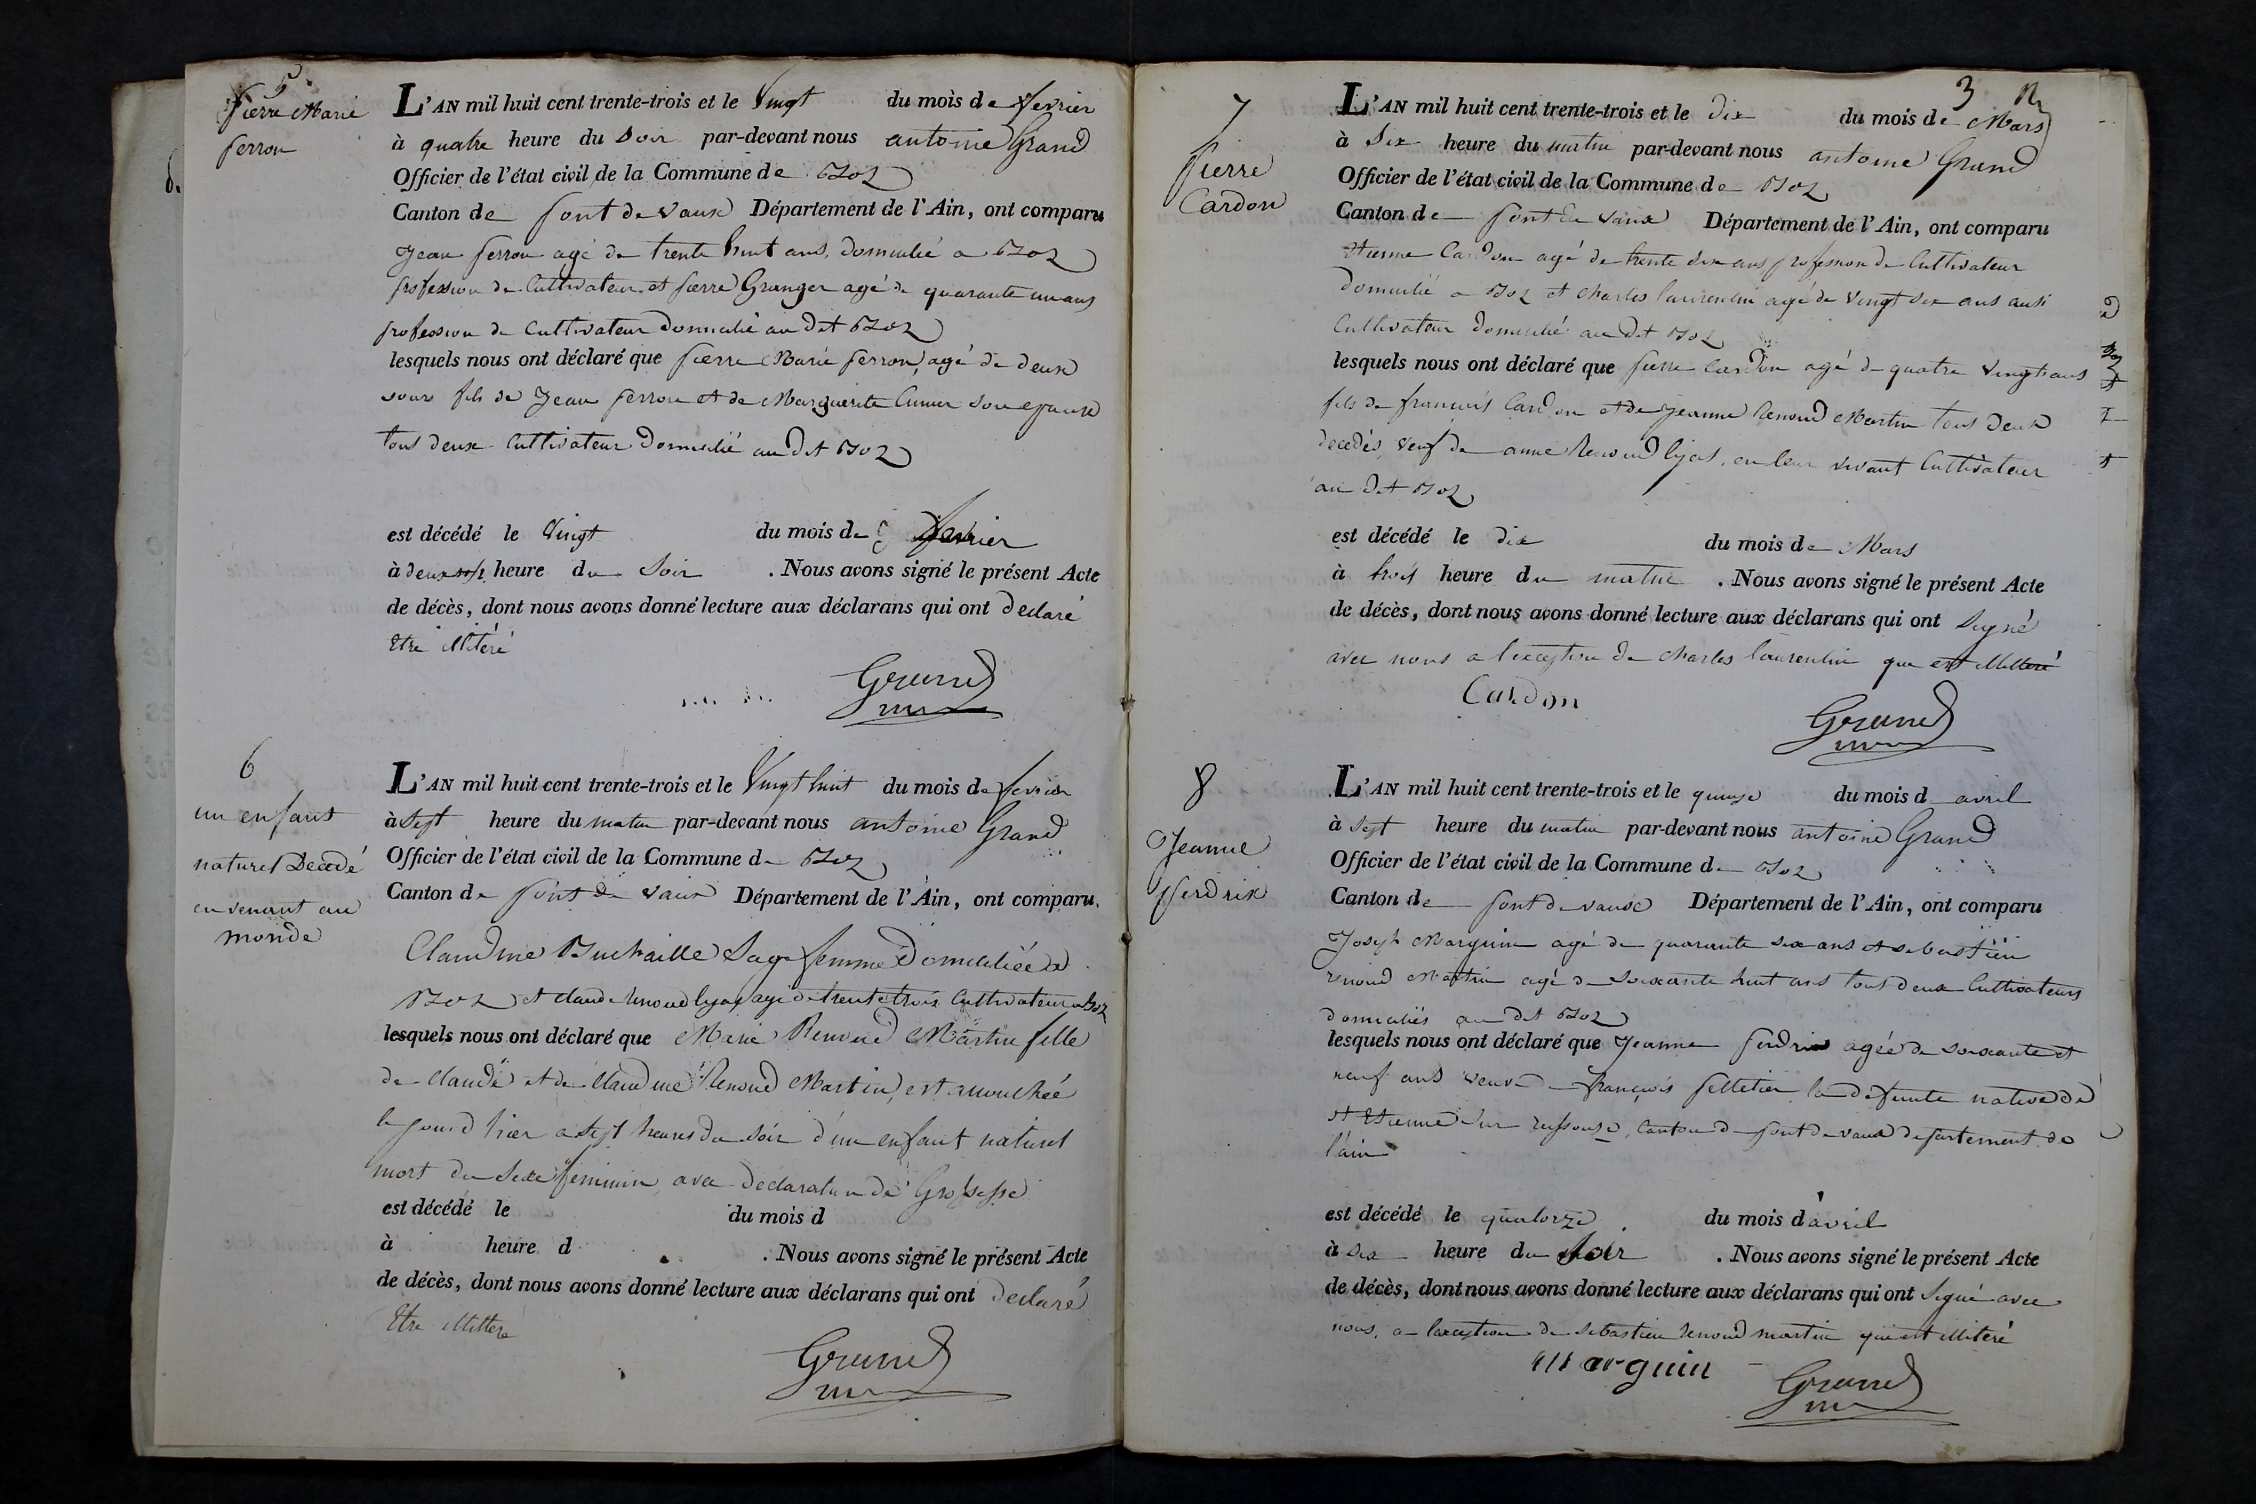 5
Pierre Marie
ferron
L'AN mil huit cent trente-trois et le Vingt du mois de fevrier
à quatre heure du Soir par-devant nous antoine Grand
Officier de l'état civil de la Commune de Boz
Canton de pont de vaux Département de l'Ain, ont comparu
Jean ferron agé de trente huit ans, domicilié a Boz
profession de Cultivateur et pierre Granger agé de quarante un ans
profession de Cultivateur domicilié au dit Boz
lesquels nous ont déclaré que pierre Marie ferron, agé de deux
jours fils de Jean ferron et de Marguerite son epouse
tous deux Cultivateur domicilié au dit Boz
est décédé le Vingt du mois de fevrier
à deux heure du Soir . Nous avons signé le présent Acte
de décès, dont nous avons donné lecture aux déclarans qui ont declaré
Etre illiteré
Grand
6
un enfant
naturel Decedé
en venant au
monde
L'AN mil huit cent trente-trois et le Vingt huit du mois de fevrier
à Sept heure du matin par-devant nous antoine Grand
Officier de l'état civil de la Commune de Boz
Canton de pont de vaux Département de l'Ain, ont comparu
Claudine Buchaille Sage femme Domiciliée a
Boz et Claude renoud lyas agé de trente trois Cultivateur a Boz
lesquels nous ont déclaré que Marie Renoud Martin fille
de Claude et de Claudine Renoud Martin, est accouchée
le jourd hier a Sept heures du soir d'un enfant naturel
mort du Sexe feminin, avec declaration de Grossesse
est décédé le du mois d
à heure d . Nous avons signé le présent Acte
de décès, dont nous avons donné lecture aux déclarans qui ont declaré
Etre illiteré
Grand
3
7
pierre
Cardon
L'AN mil huit cent trente-trois et le dix du mois de Mars
à Six heure du matin par-devant nous antoine Grand
Officier de l'état civil de la Commune de Boz
Canton de pont de vaux Département de l'Ain, ont comparu
Etienne Cardon agé de trente six ans profession de Cultivateur
domicilié a Boz et Charles laurentin agé de Vingt six ans aussi
Cultivateur domicilié au dit Boz
lesquels nous ont déclaré que pierre Cardon agé de quatre Vingt ans
fils de francois Cardon et de Jeanne Renoud Martin tous deux
decedés, Veuf de anne Renoud lyas, en leur vivant Cultivateur
au dit Boz
est décédé le dix du mois de Mars
à trois heure du matin . Nous avons signé le présent Acte
de décès, dont nous avons donné lecture aux déclarans qui ont Signé
avec nous a l'exception de Charles laurentin que est illitteré
Cardon
Grand
8
Jeanne
Perdrix
L'AN mil huit cent trente-trois et le quinze du mois d avril
à Sept heure du matin par-devant nous antoine Grand
Officier de l'état civil de la Commune de Boz
Canton de pont de vaux Département de l'Ain, ont comparu
Joseph Marguin agé de quarante six ans et sebastien
renoud Martin agé de soixante huit ans tous deux Cultivateurs
domiciliés au dit Boz
lesquels nous ont déclaré que Jeanne perdrix agée de soixante et
neuf ans veuve de françois pelletier la defunte native de
St Etienne sur reyssouse, Canton de pont de vaux departement de
l'ain
est décédé le quatorze du mois d'avril
à six heure du Soir . Nous avons signé le présent Acte
de décès, dont nous avons donné lecture aux déclarans qui ont Signé avec
nous, a l'exception de Sebastien renoud martin qui est illiteré
Marguin
Grand